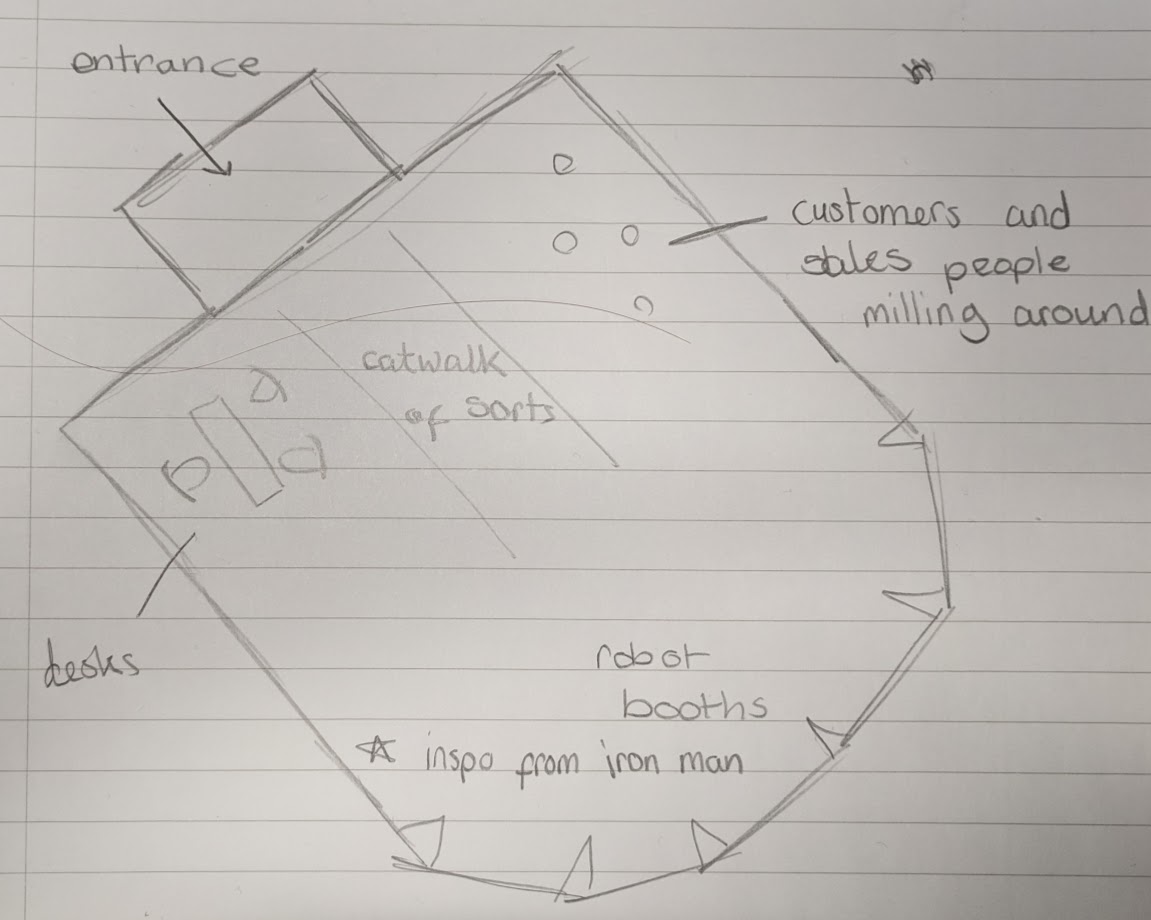 entrance
customers and
sales people
milling around
catwalk
of sorts
desks
robot
booths
☆ inspo from iron man